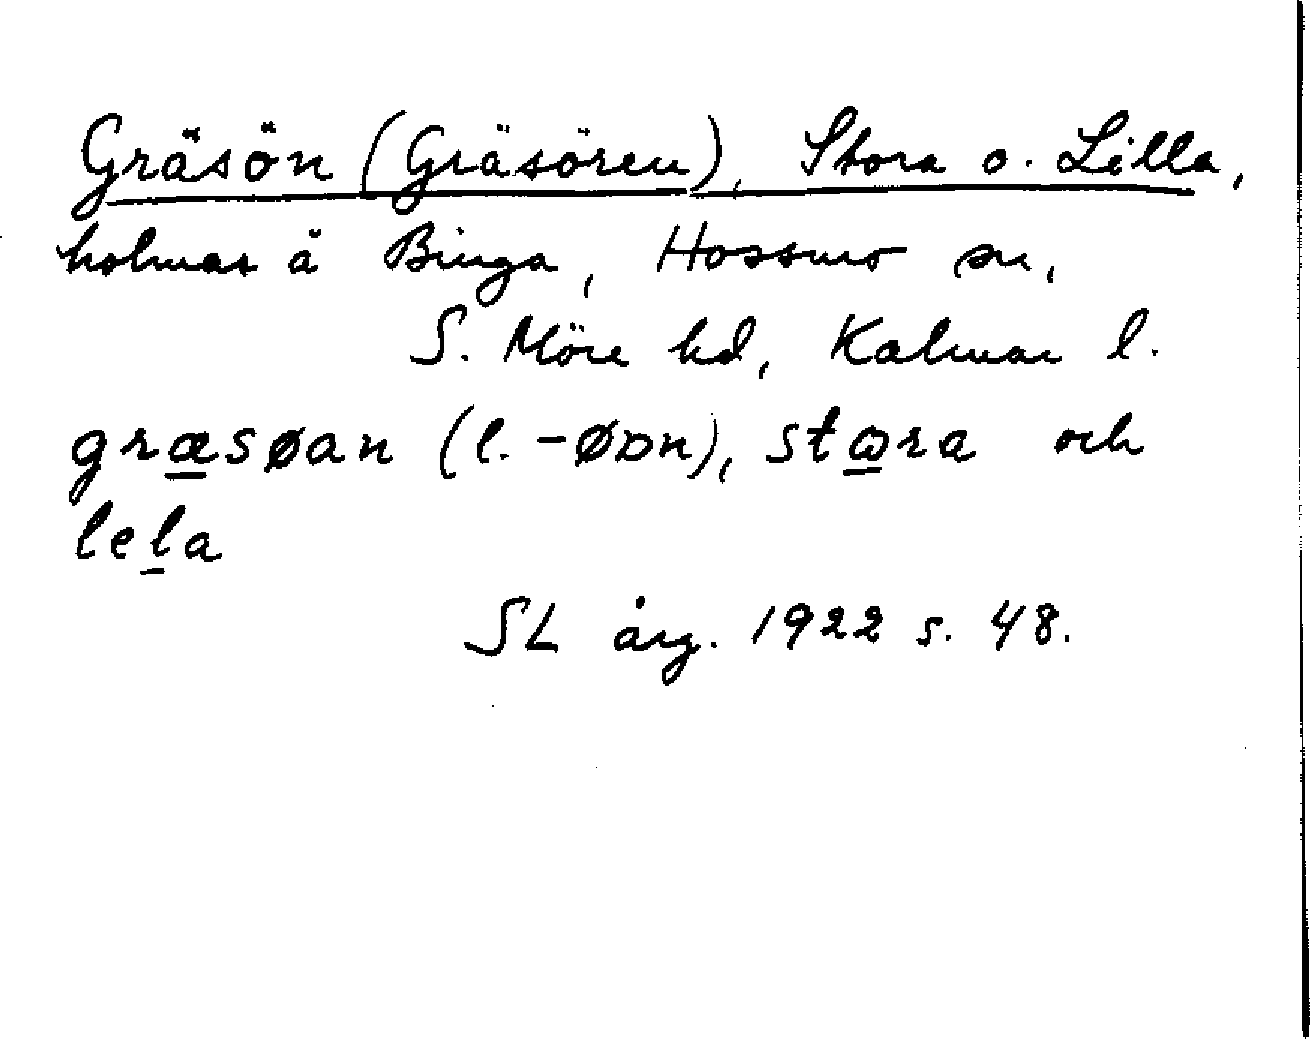 Gräsön (Gräsören), Stora o. Lilla,
holmar å Binga, Hossmo sn,
S. Möre hd, Kalmar l.
græsøan (l. -øɒn), stɷra och
lela
SL årg. 1922 s. 48.